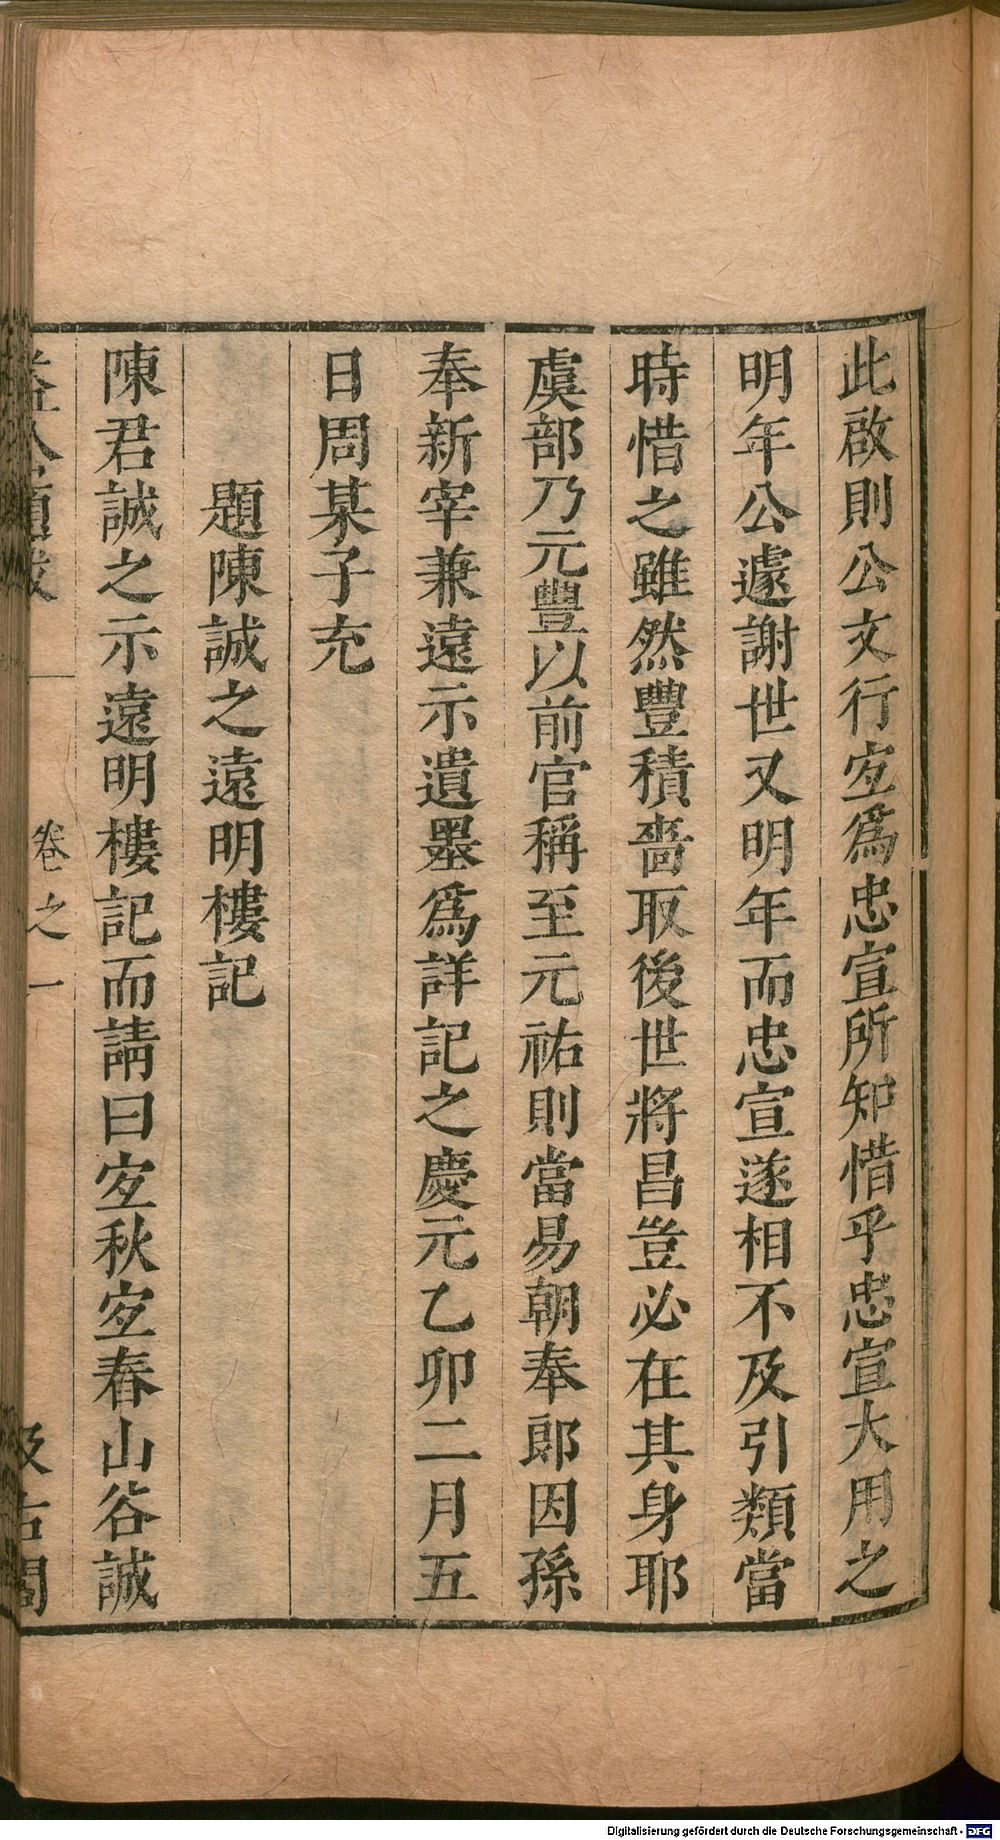 此啟則公文行宐爲忠宣所知惜乎忠宣大用之
明年公遽謝世又明年而忠宣遂相不及引類當
時惜之雖然豐積嗇取後世將昌豈必在其身耶
虞部乃元豐以前官稱至元祐則當易朝奉郎因孫
奉新宰兼遠示遺墨爲詳記之慶元乙卯二月五
日周某子充
題陳誠之遠明樓記
陳君誠之示遠明樓記而請曰宐秋宐春山谷誠
益公題跋
卷之一
汲古閣
Digitalisierung gefördert durch die Deutsche Forschungsgemeinschaft - DFG